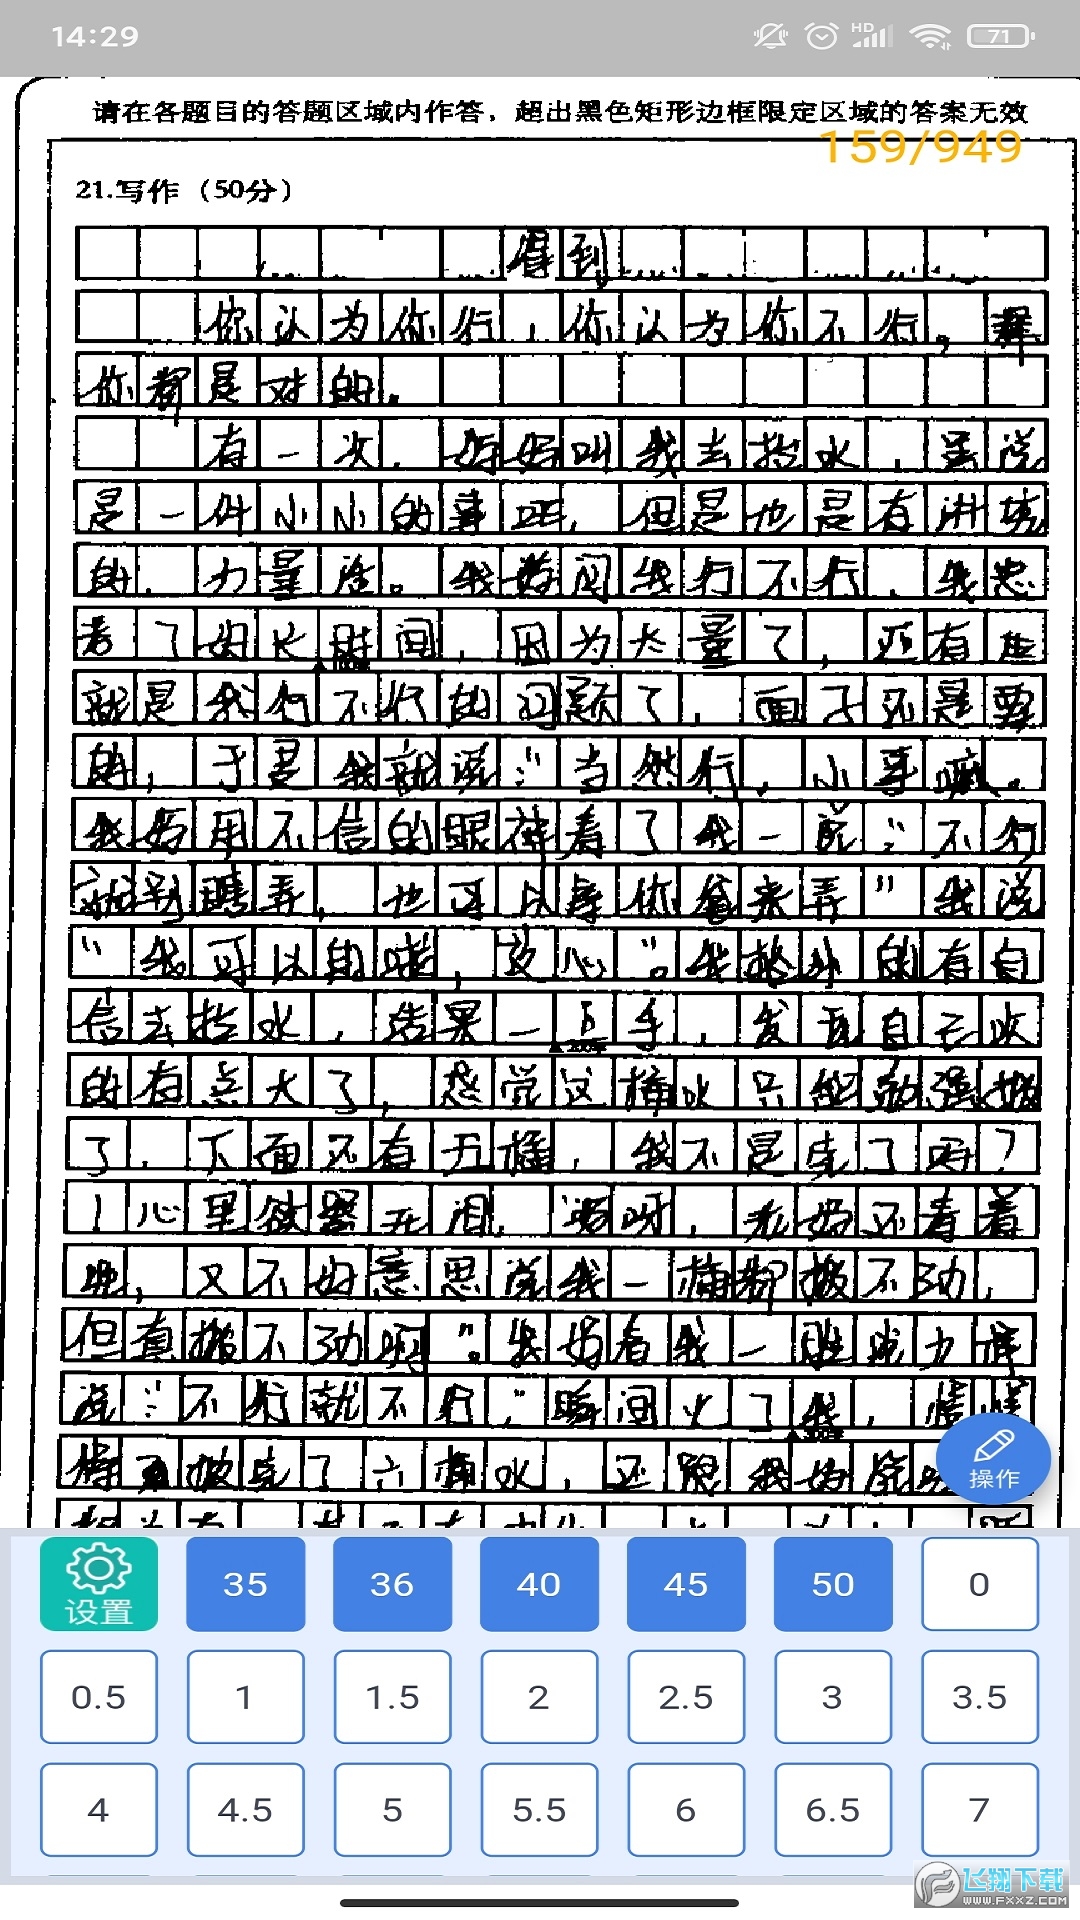 14:29
HD
71
请在各题目的答题区域内作答，超出黑色矩形边框限定区域的答案无效
159/949
21.写作（50分）
得到
你认为你行，你认为你不行，
你都是对的。
有一次，妈妈叫我去水，虽说
是一件小小的事吧，但是也是有讲究
的，力量活。我妈问我行不行，我思
考了好长时间，因为太量了，还有些
就是我行不行的问题了，面子还是要
的，于是我就说："当然行，小事嘛。
我妈用不信的眼神看了我一说："不行
就别弄，也可以等你爸来弄"我说
"我可以的哦，放心"。我格外的有自
信去水，结果一下手，发现自己
的有点大了，感觉这桶水只能勉强搬
了，下面还有五桶，我不是完了吗？
心里欲哭无泪，呀，老妈还看着
呢，又不好意思说我一桶都搬不动，
但真搬不动啊"。我妈看我一
说："不行就不行，"瞬间火了我，
搬完了六桶水，还跟我妈
操作
设置
35 36 40 45 50 0
0.5 1 1.5 2 2.5 3 3.5
4 4.5 5 5.5 6 6.5 7
飞翔下载
WWW.FXXZ.COM